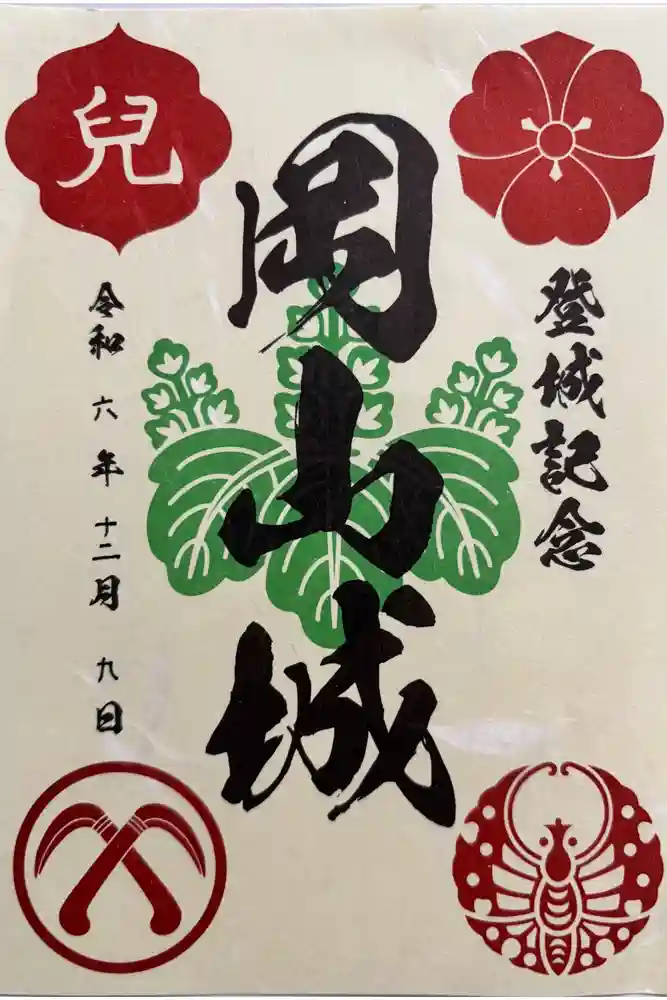 登城記念
岡山城
兒
令和 六年 十二月 九日